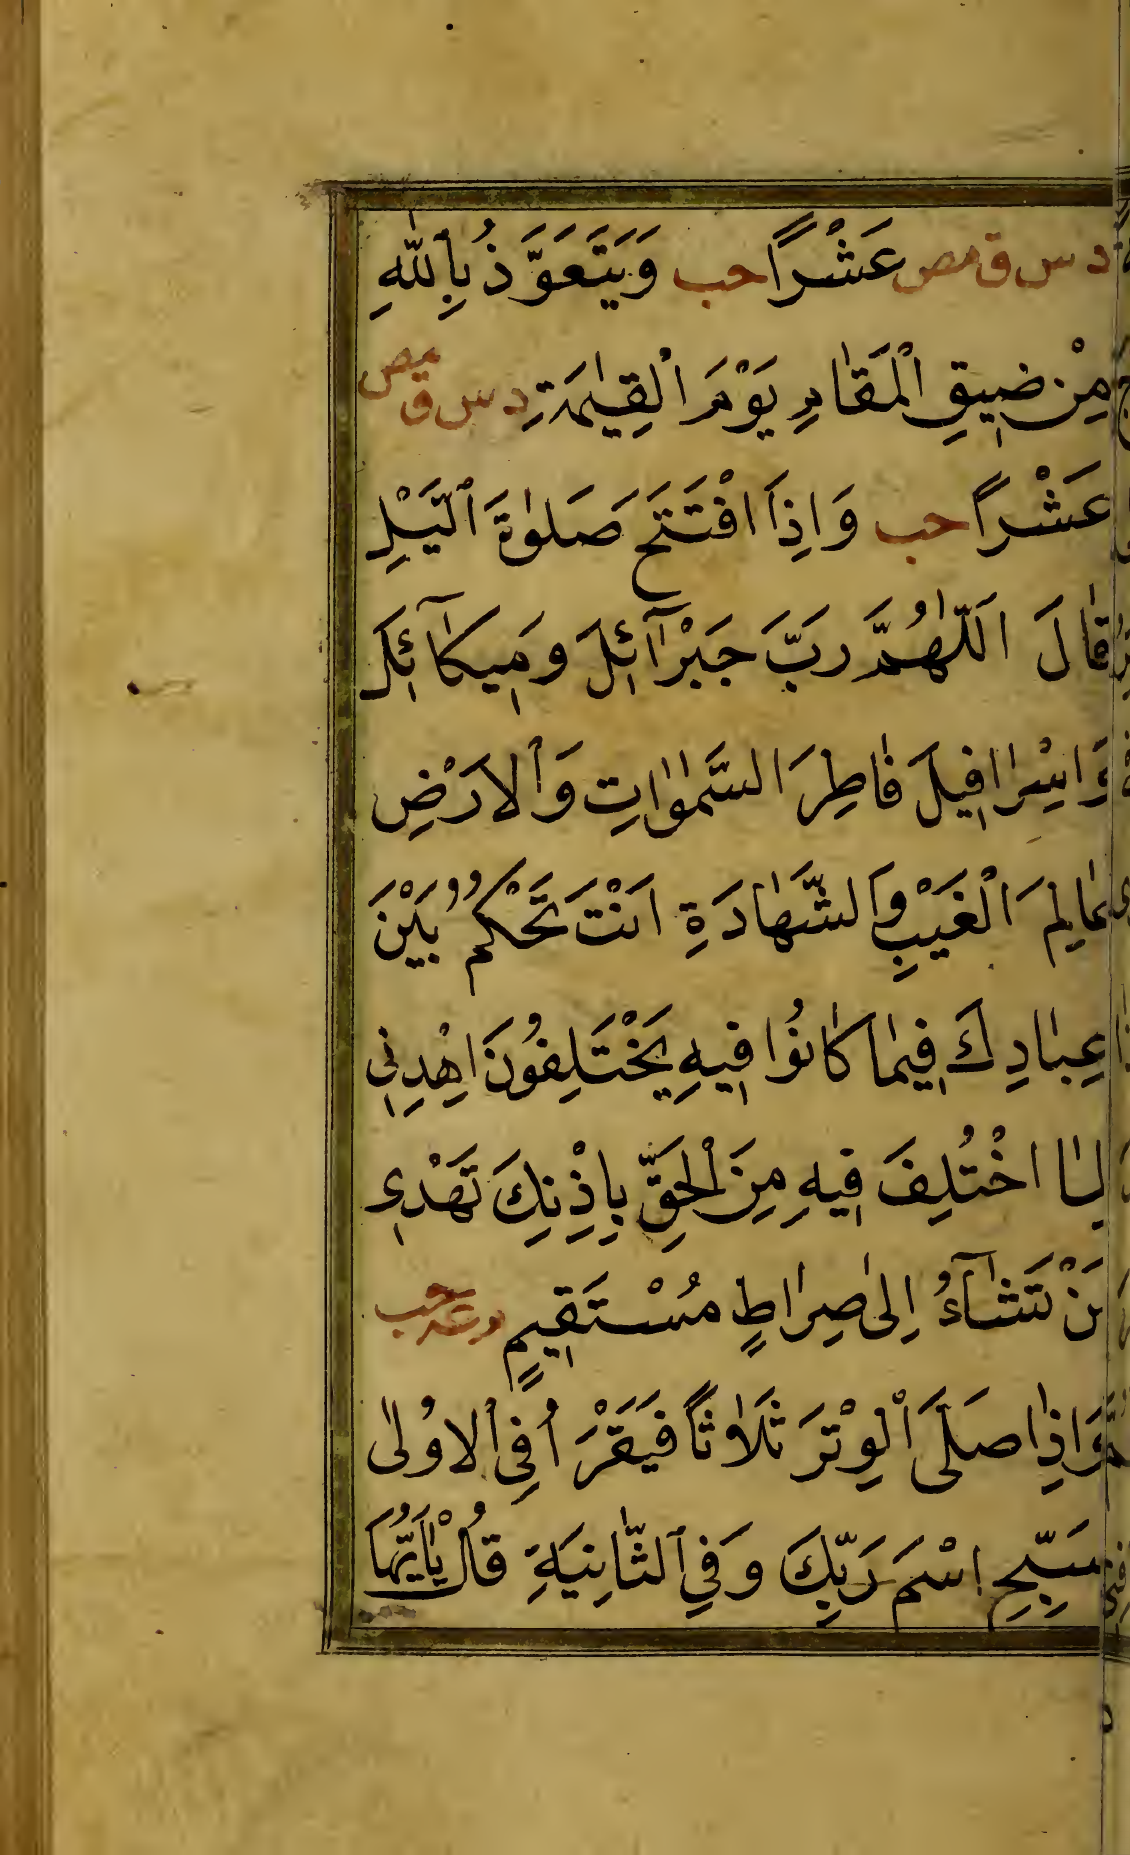 د س ق مص عَشْرًا حب وَيَتَعَوَّذُ بِاللّٰهِ
مِنْ ضِيقِ الْمَقَامِ يَوْمَ الْقِيٰمَةِ د س ق مص
عَشْرًا حب وَاِذَا افْتَتَحَ صَلٰوةَ الَّيْلِ
قَالَ اَللّٰهُمَّ رَبَّ جَبْرَآئِلَ وَمِيكَآئِلَ
وَاِسْرَافِيلَ فَاطِرَ السَّمٰوَاتِ وَالْاَرْضِ
عَالِمَ الْغَيْبِ وَالشَّهَادَةِ اَنْتَ تَحْكُمُ بَيْنَ
عِبَادِكَ فِيمَا كَانُوا فِيهِ يَخْتَلِفُونَ اهْدِنِي
لِمَا اخْتُلِفَ فِيهِ مِنَ الْحَقِّ بِاِذْنِكَ تَهْدِي
مَنْ تَشَآءُ اِلٰى صِرَاطٍ مُسْتَقِيمٍ م عه حب
وَاِذَا صَلَّى الْوِتْرَ ثَلَاثًا فَيَقْرَأُ فِي الْاُولٰى
سَبِّحِ اسْمَ رَبِّكَ وَفِي الثَّانِيَةِ قُلْ يٰٓاَيُّهَا